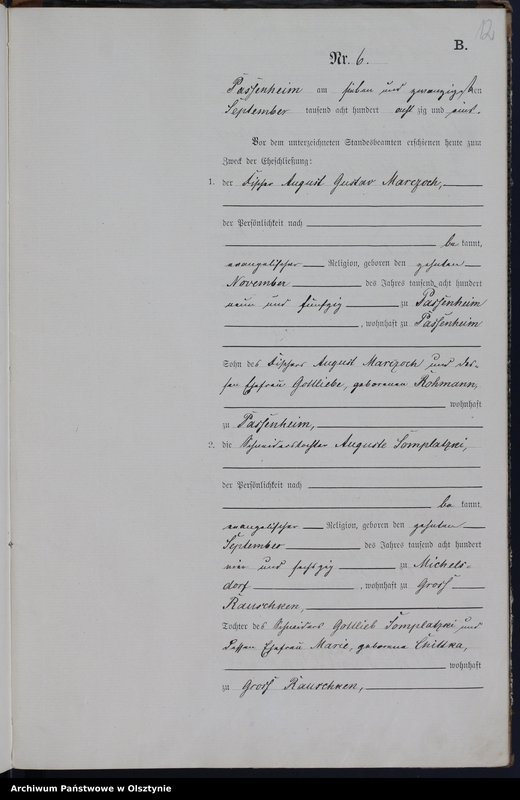 12
B.
Nr. 6.
Passenheim am sieben und zwanzigsten
September tausend acht hundert acht zig und eins.
Vor dem unterzeichneten Standesbeamten erschienen heute zum
Zweck der Eheschließung:
1. der Fischer August Gustav Marczoch,
der Persönlichkeit nach
be kannt,
evangelischer Religion, geboren den zehnten
November des Jahres tausend acht hundert
neun und fünfzig zu Passenheim
, wohnhaft zu Passenheim
Sohn des Fischers August Marczoch und des-
sen Ehefrau Gottliebe, geborenen Rohmann,
wohnhaft
zu Passenheim,
2. die Schneiderstochter Auguste Somplatzki,
der Persönlichkeit nach
be kannt,
evangelischer Religion, geboren den zehnten
September des Jahres tausend acht hundert
vier und sechzig zu Michels-
dorf, wohnhaft zu Gross
Rauschken,
Tochter des Schneiders Gottlieb Somplatzki und
dessen Ehefrau Marie, geborene Chittka,
wohnhaft
zu Gross Rauschken,
Archiwum Państwowe w Olsztynie